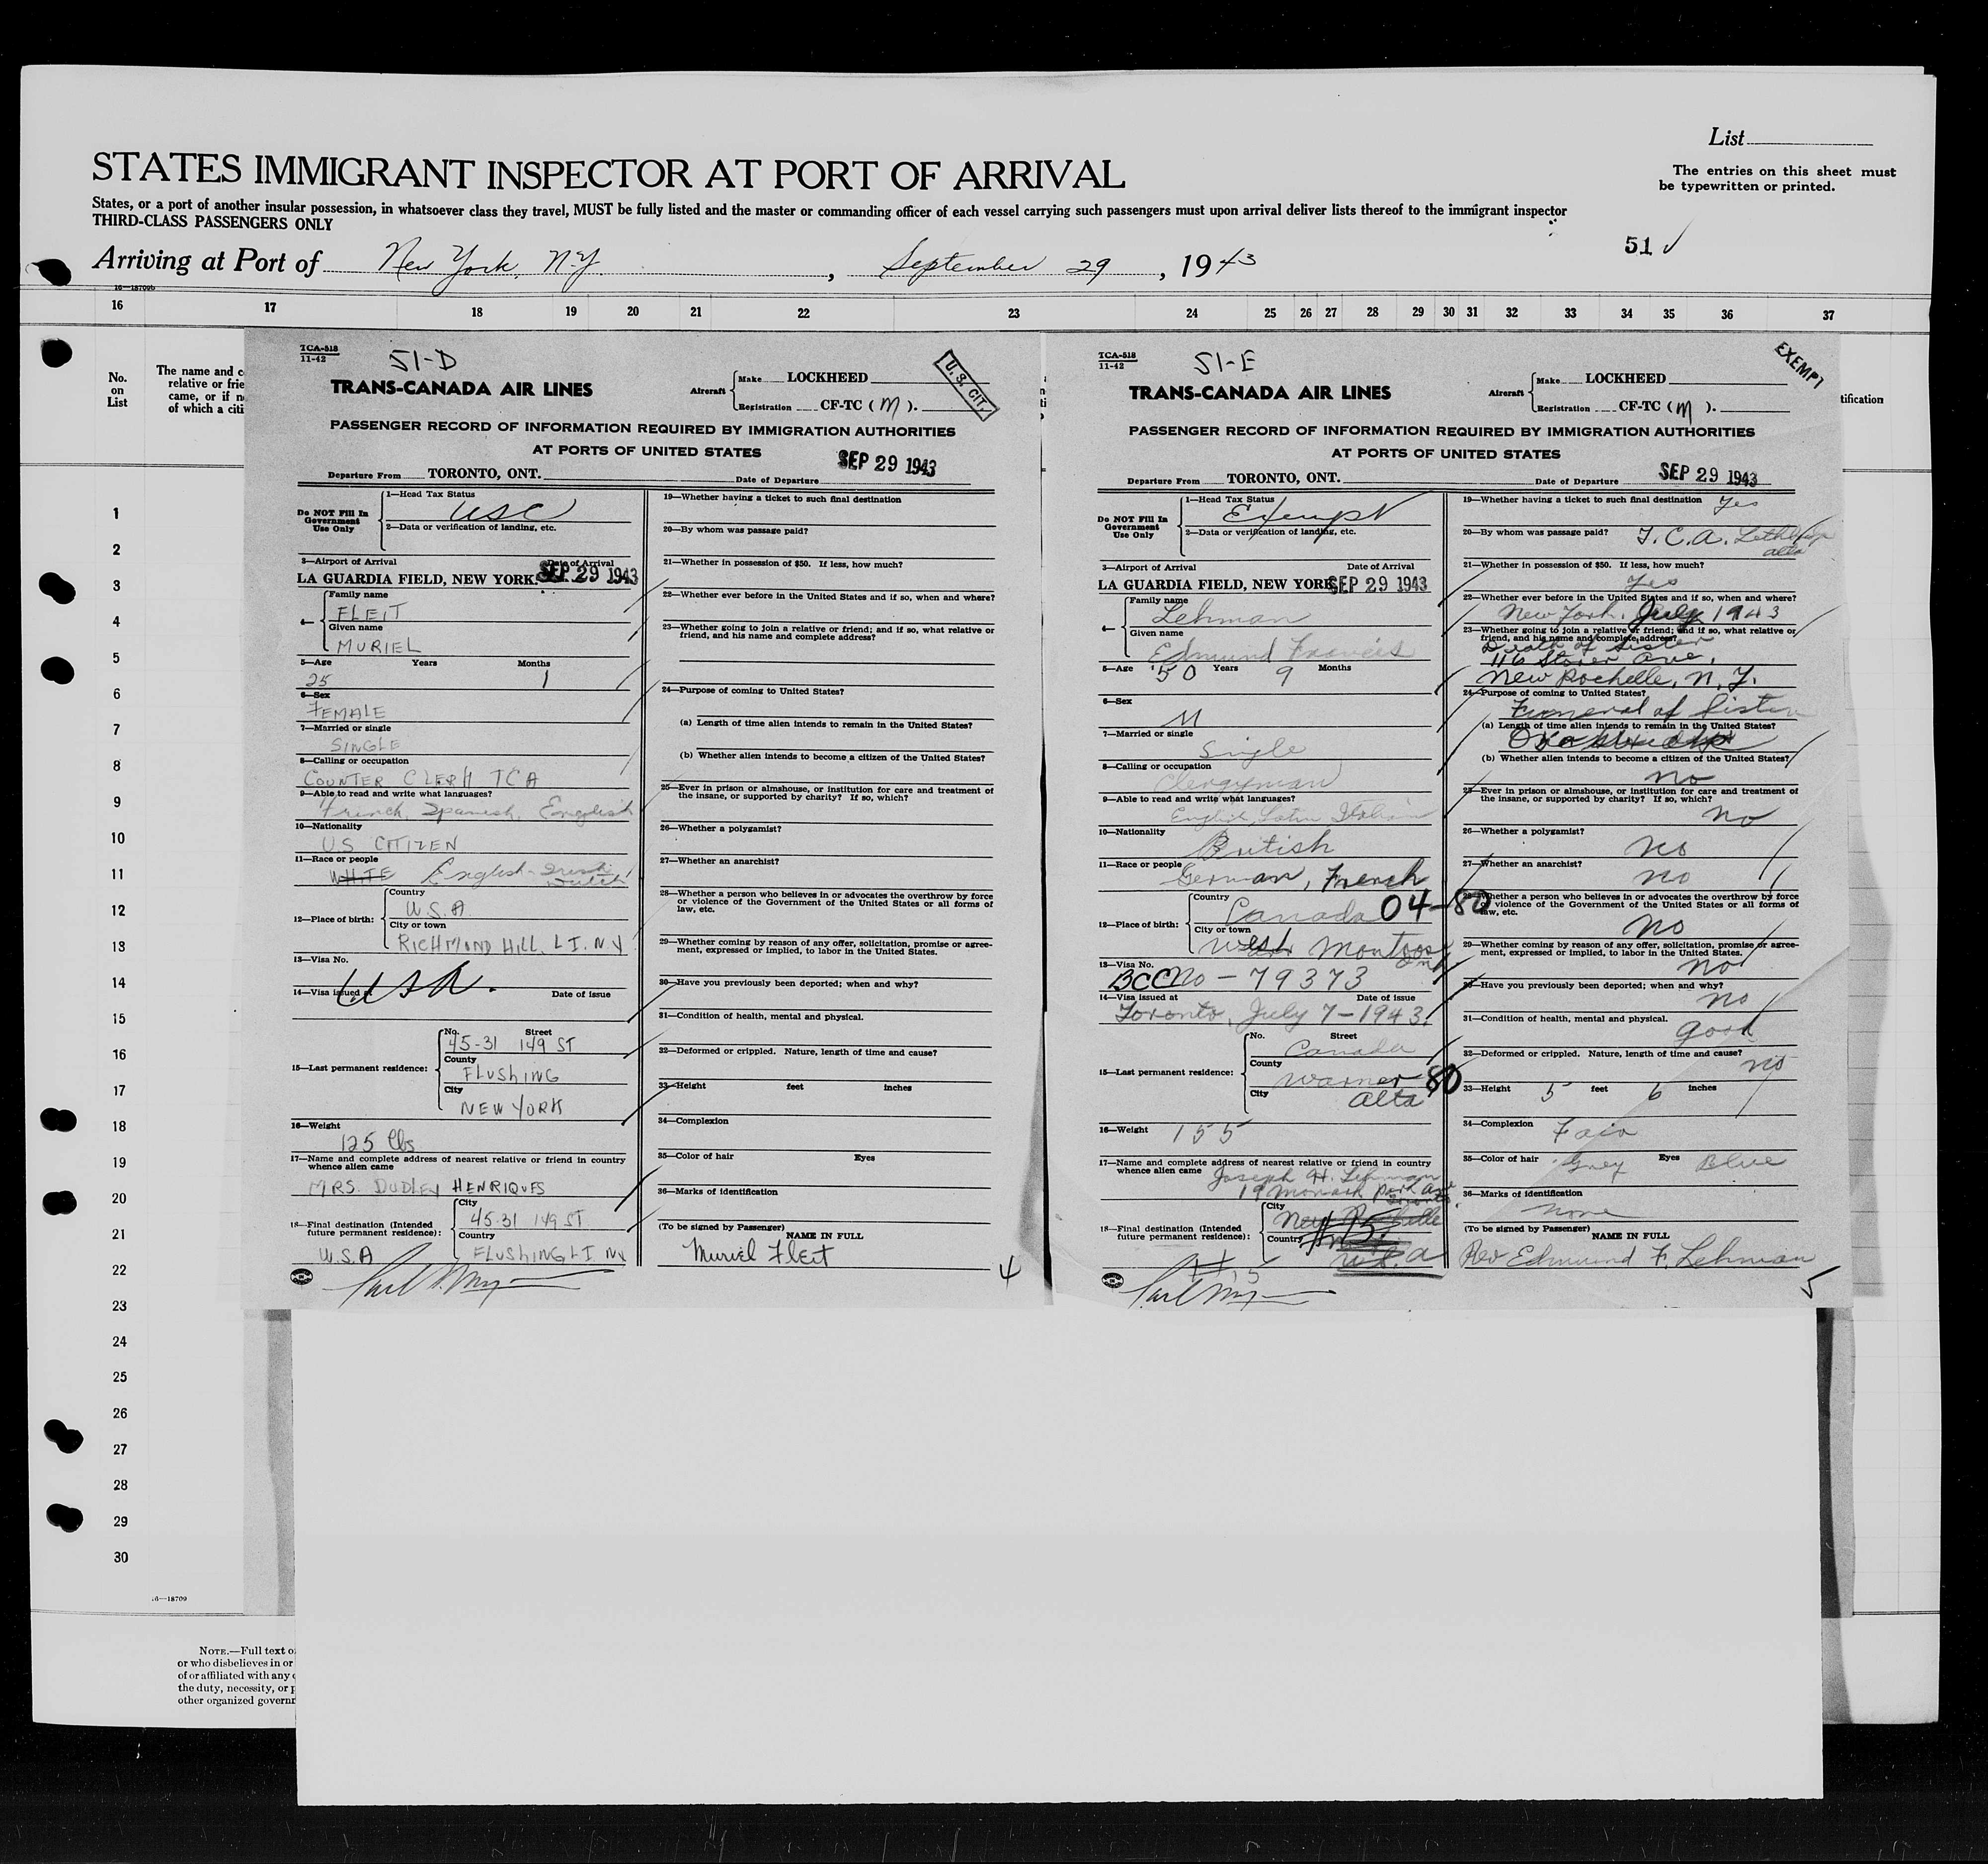 List
STATES IMMIGRANT INSPECTOR AT PORT OF ARRIVAL
The entries on this sheet must
be typewritten or printed.
States, or a port of another insular possession, in whatsoever class they travel, MUST be fully listed and the master or commanding officer of each vessel carrying such passengers must upon arrival deliver lists thereof to the immigrant inspector
THIRD-CLASS PASSENGERS ONLY
51 ✓
Arriving at Port of New York, N.Y , September 29 , 1943
16—18709b
16 17 18 19 20 21 22 23 24 25 26 27 28 29 30 31 32 33 34 35 36 37
No.
on
List
The name and c
relative or frie
came, or if n
of which a citi
tification
1
2
3
4
5
6
7
8
9
10
11
12
13
14
15
16
17
18
19
20
21
22
23
24
25
26
27
28
29
30
16—18709
NOTE.—Full text o
or who disbelieves in or
of or affiliated with any
the duty, necessity, or p
other organized governr
TCA-518
11-42
51-D
U. S. CIT.
TRANS-CANADA AIR LINES
Aircraft
Make LOCKHEED
Registration CF-TC ( M ).
PASSENGER RECORD OF INFORMATION REQUIRED BY IMMIGRATION AUTHORITIES
AT PORTS OF UNITED STATES
SEP 29 1943
Departure From TORONTO, ONT. Date of Departure
Do NOT Fill In
Government
Use Only
1—Head Tax Status
USC
2—Data or verification of landing, etc.
3—Airport of Arrival Date of Arrival
LA GUARDIA FIELD, NEW YORK. SEP 29 1943
4—
Family name
FLEIT
Given name
MURIEL
5—Age Years Months
25 1
6—Sex
FEMALE
7—Married or single
SINGLE
8—Calling or occupation
COUNTER CLERK TCA
9—Able to read and write what languages?
French, Spanish, English
10—Nationality
U.S CITIZEN
11—Race or people
WHITE English-Irish
12—Place of birth:
Country
U.S.A
City or town
RICHMOND HILL. L I. N Y
13—Visa No.
14—Visa issued at Date of issue
15—Last permanent residence:
No. Street
45-31 149 ST
County
FLUSHING
City
NEW YORK
16—Weight
125 lbs
17—Name and complete address of nearest relative or friend in country
whence alien came
MRS. DUDLEY HENRIQUES
18—Final destination (Intended
future permanent residence):
City
45-31 149 ST
Country
U.S.A FLUSHING L I NY
19—Whether having a ticket to such final destination
20—By whom was passage paid?
21—Whether in possession of $50. If less, how much?
22—Whether ever before in the United States and if so, when and where?
23—Whether going to join a relative or friend; and if so, what relative or
friend, and his name and complete address?
24—Purpose of coming to United States?
(a) Length of time alien intends to remain in the United States?
(b) Whether alien intends to become a citizen of the United States?
25—Ever in prison or almshouse, or institution for care and treatment of
the insane, or supported by charity? If so, which?
26—Whether a polygamist?
27—Whether an anarchist?
28—Whether a person who believes in or advocates the overthrow by force
or violence of the Government of the United States or all forms of
law, etc.
29—Whether coming by reason of any offer, solicitation, promise or agree-
ment, expressed or implied, to labor in the United States.
30—Have you previously been deported; when and why?
31—Condition of health, mental and physical.
32—Deformed or crippled. Nature, length of time and cause?
33—Height feet inches
34—Complexion
35—Color of hair Eyes
36—Marks of identification
(To be signed by Passenger) NAME IN FULL
Muriel Fleit
4
TCA-518
11-42
51-E
EXEMPT
TRANS-CANADA AIR LINES
Aircraft
Make LOCKHEED
Registration CF-TC ( M ).
PASSENGER RECORD OF INFORMATION REQUIRED BY IMMIGRATION AUTHORITIES
AT PORTS OF UNITED STATES
SEP 29 1943
Departure From TORONTO, ONT. Date of Departure
Do NOT Fill In
Government
Use Only
1—Head Tax Status
Exempt
2—Data or verification of landing, etc.
3—Airport of Arrival Date of Arrival
LA GUARDIA FIELD, NEW YORK SEP 29 1943
4—
Family name
Lehman
Given name
Edmund Francis
5—Age 50 Years 9 Months
6—Sex
M
7—Married or single
Single
8—Calling or occupation
Clergyman
9—Able to read and write what languages?
English, Latin Italian
10—Nationality
British
11—Race or people
German, French
12—Place of birth:
Country
Canada 04-80
City or town
West Montrose
13—Visa No.
BCC No - 79373
14—Visa issued at Date of issue
Toronto, July 7-1943.
15—Last permanent residence:
No. Street
Canada
County
Warner 80
City
Alta
16—Weight 155
17—Name and complete address of nearest relative or friend in country
whence alien came
Joseph H. Lehman
19 Monash Park Ave
18—Final destination (Intended
future permanent residence):
City
New Rochelle
Country
U.S.A
19—Whether having a ticket to such final destination Yes
20—By whom was passage paid? T.C.A. Lethbridge
alta
21—Whether in possession of $50. If less, how much?
Yes
22—Whether ever before in the United States and if so, when and where?
New York, July 1943
23—Whether going to join a relative or friend; and if so, what relative or
friend, and his name and complete address?
Death of Sister
116 Storer Ave,
New Rochelle, N.Y.
24—Purpose of coming to United States?
Funeral of Sister
(a) Length of time alien intends to remain in the United States?
(b) Whether alien intends to become a citizen of the United States?
no
25—Ever in prison or almshouse, or institution for care and treatment of
the insane, or supported by charity? If so, which?
No
26—Whether a polygamist?
no
27—Whether an anarchist?
no
28—Whether a person who believes in or advocates the overthrow by force
or violence of the Government of the United States or all forms of
law, etc.
no
29—Whether coming by reason of any offer, solicitation, promise or agree-
ment, expressed or implied, to labor in the United States.
no
30—Have you previously been deported; when and why?
no
31—Condition of health, mental and physical.
good
32—Deformed or crippled. Nature, length of time and cause?
no
33—Height 5 feet 6 inches
34—Complexion Fair
35—Color of hair Grey Eyes Blue
36—Marks of identification
none
(To be signed by Passenger) NAME IN FULL
Rev Edmund F. Lehman
5